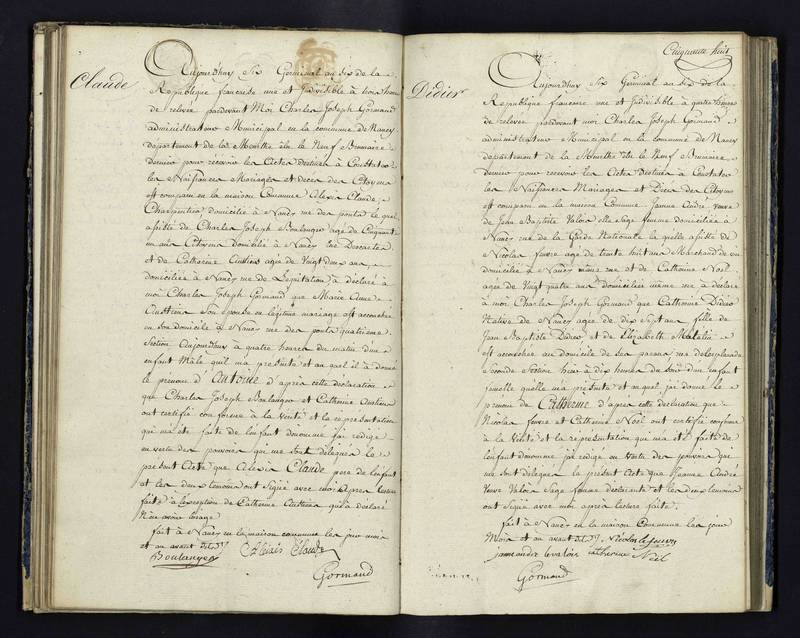 Claude
Aujourd'huy Six Germinal an six de la
Republique francaise une et Indivisible à trois heures
de relevée pardevant Moi Charles Joseph Gormand
administrateur Municipal en la commune de Nancy
departement de la Meurthe élu le Neuf Brumaire
dernier pour recevoir les Actes destinés à Constater
les Naissances Mariages et deces des Citoyens
est comparu en la maison Commune Alexis Claude
Charpentier domicilié à Nancy rue des ponts le quel
assisté de Charles Joseph Boulanger agé de Cinquante
un ans Citoyen Domicilié à Nancy rue Descartes
et de Catherine agée de Vingt deux ans
domiciliée à Nancy rue de à déclaré à
moi Charles Joseph Gormand que Marie Anne
Son épouse en légitime mariage est accouchée
en son domicile à Nancy rue des ponts quatrieme
Section Aujourd'huy à quatre heures du matin d'un
enfant Mâle qu'il m'a présenté et au quel il à donné
le prenom d'Antoine d'après cette déclaration
que Charles Joseph Boulanger et Catherine
ont certifié conforme à la verité et la représentation
qui m'a été faite de l'enfant dénommé j'ai redigé
en vertu des pouvoirs qui me sont délégués le
présent Acte que Alexis Claude pere de l'enfant
et les deux temoins ont signé avec moi Après lecture
faite à l'exception de Catherine qui à declaré
N'en avoir l'usage
fait à Nancy en la maison commune les jour mois
et an avant dits
Boulanger Alexis Claude
Gormand
Cinquante huit
Didier
Aujourd'huy Six Germinal an six de la
Republique francoise une et Indivisible à quatre heures
de relevée pardevant moi Charles Joseph Gormand
administrateur Municipal en la commune de Nancy
departement de la Meurthe élu le Neuf Brumaire
dernier pour recevoir les Actes Destinés à Constater
les Naissances Mariages et Décès des Citoyens
est comparu en la maison Commune Jeanne André veuve
de Jean Baptiste Valois elle Sage femme domiciliée à
Nancy rue de la Garde Nationale la quelle assistée de
Nicolas agé de trente huit ans Marchand de vin
domicilié à Nancy même rue et de Catherine Noel
agée de Vingt quatre ans Domiciliée même rue à declaré
à moi Charles Joseph Gormand que Catherine Didier
Native de Nancy agée de dix sept ans fille de
Jean Baptiste Didier et de Elizabeth
est accouchée au domicile de ses parens rue de l'esplanade
Seconde Section hier à dix heures du soir d'un enfant
femelle qu'elle m'a présenté et auquel j'ai donné le
prénom de Catherine d'après cette declaration que
Nicolas et Catherine Noel ont certifié conforme
à la Verité et la representation qui m'a été faite de
l'enfant denommé j'ai redigé en vertu des pouvoirs qui
me sont délégués le présent Acte que Jeanne André
veuve Valois Sage femme déclarante et les deux temoins
ont signé avec moi après lecture faite
fait à Nancy en la maison Commune les jour
Mois et an avant dits Nicolas
catherine Noel
Gormand